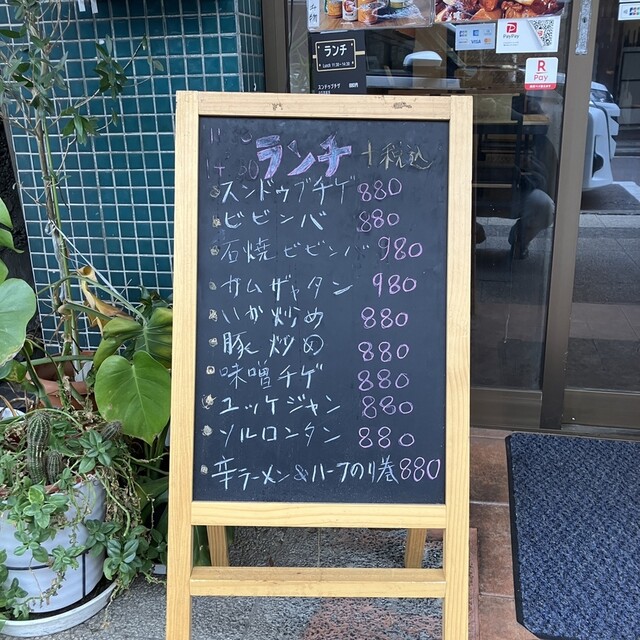 ランチ
Lunch 11:30~14:30
PayPay
R
Pay
JCB
VISA
ランチ 税込
スンドゥブチゲ 880
ビビンバ 880
石焼ビビンバ 980
カムジャタン 980
いか炒め 880
豚炒め 880
味噌チゲ 880
ユッケジャン 880
ソルロンタン 880
辛ラーメン&ハーフのり巻 880